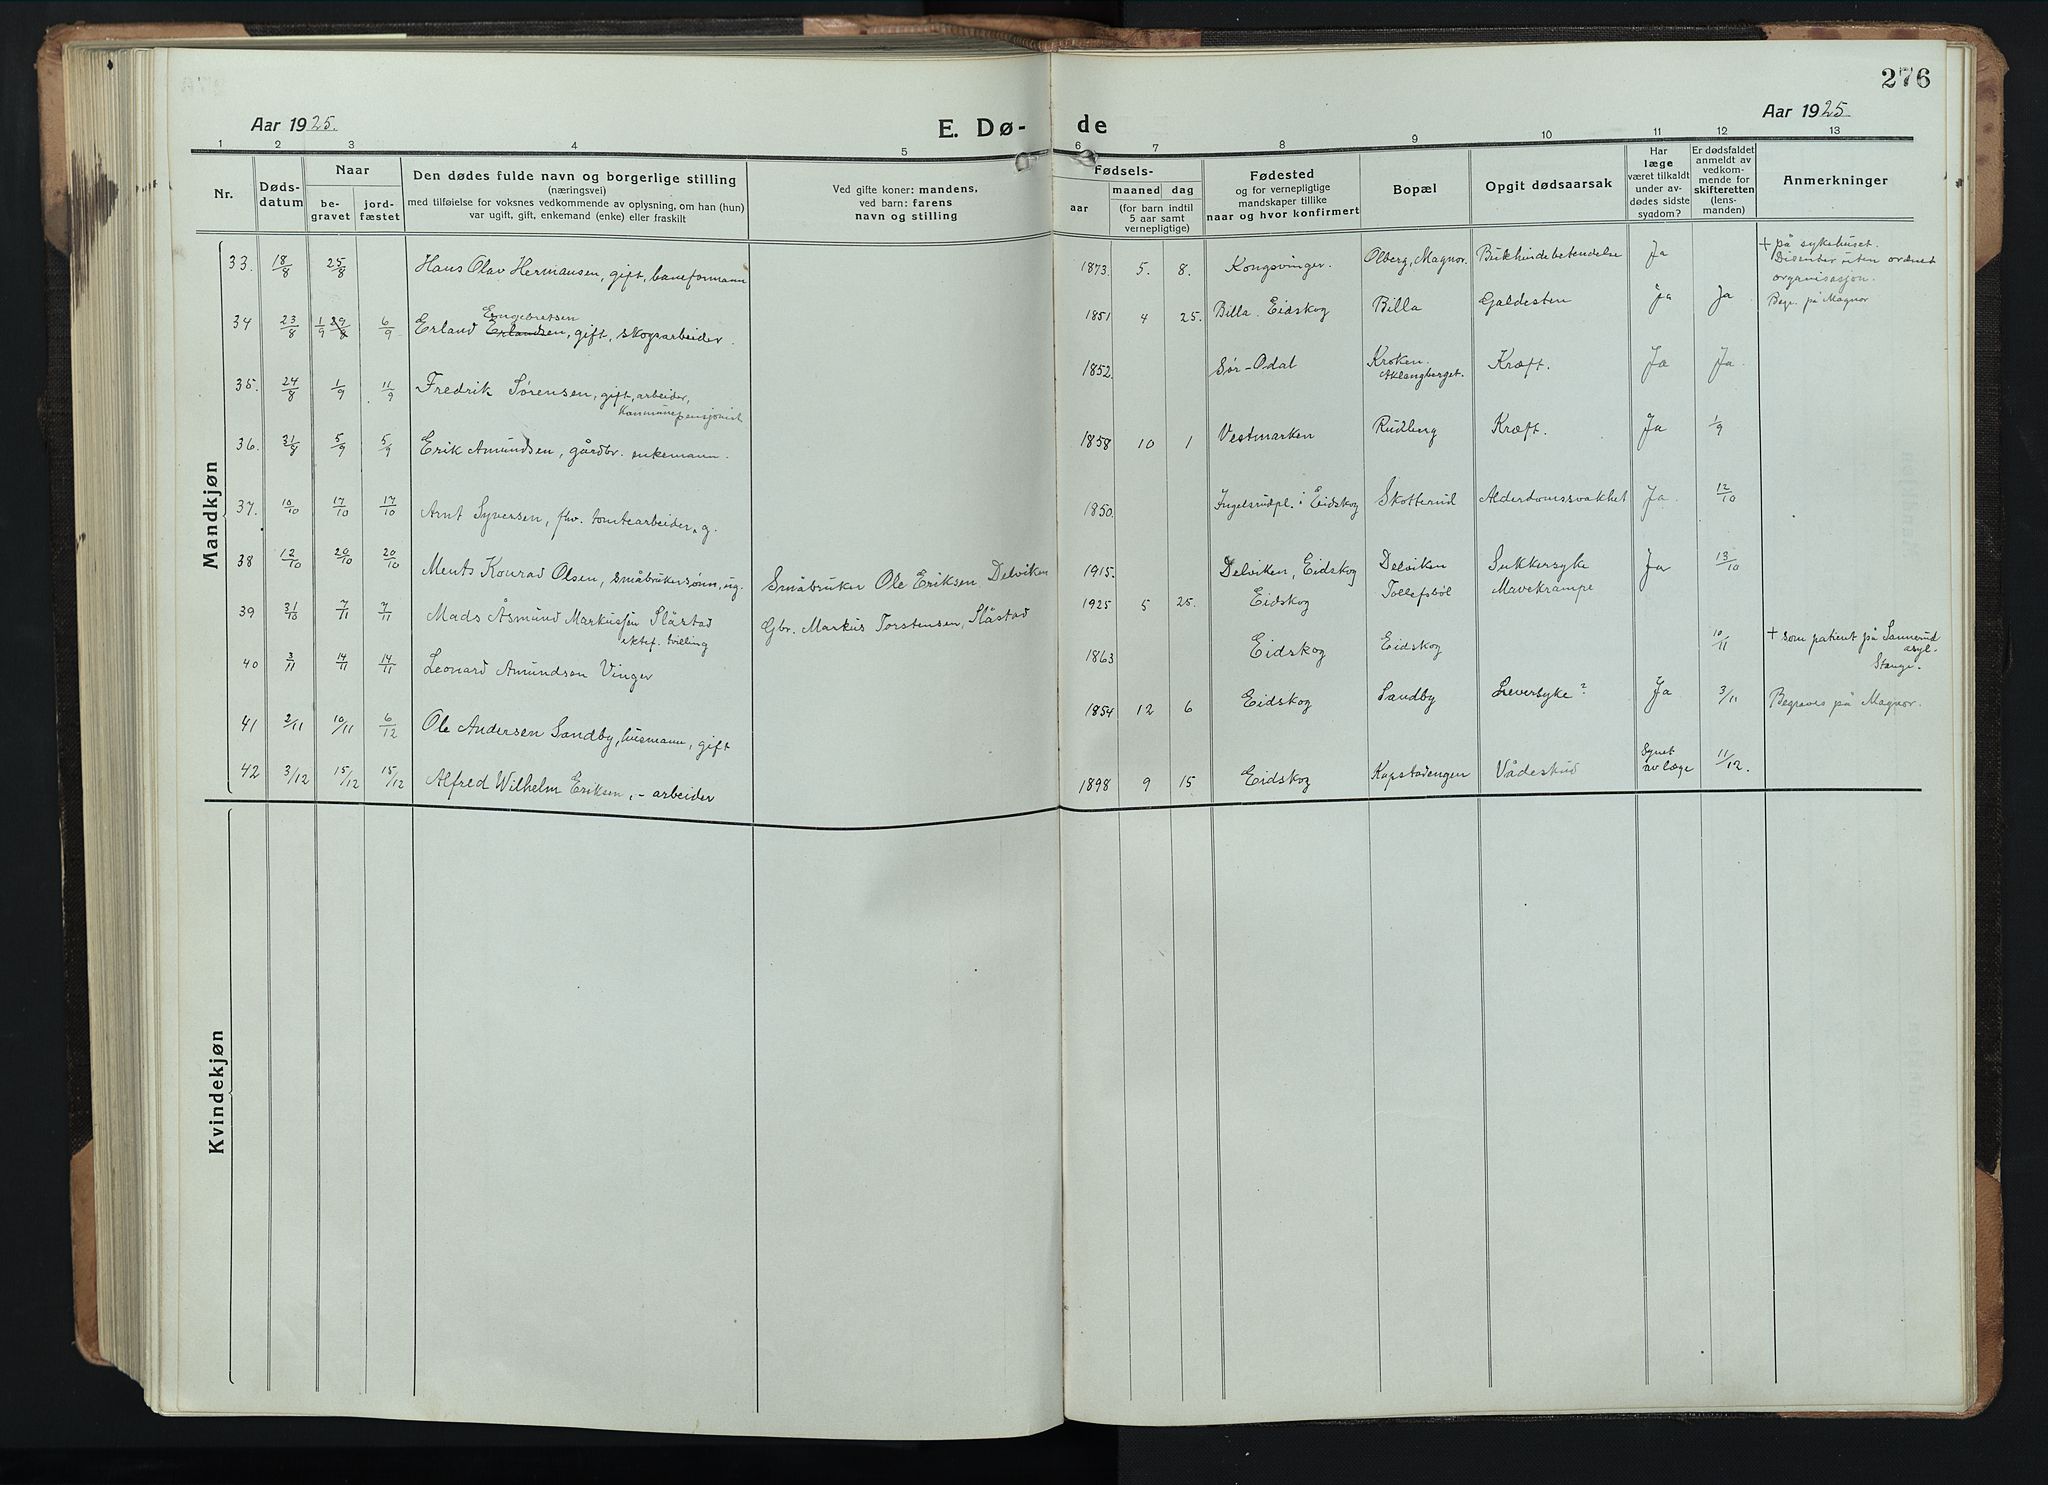 276
Aar 1925.
E. Dø- de
Aar 1925
1 2 3 4 5 6 7 8 9 10 11 12 13
Nr.
Døds-
datum
Naar
be-
gravet
jord-
fæstet
Den dødes fulde navn og borgerlige stilling
(næringsvei)
med tilføielse for voksnes vedkommende av oplysning, om han (hun)
var ugift, gift, enkemand (enke) eller fraskilt
Ved gifte koner: mandens,
ved barn: farens
navn og stilling
Fødsels-
aar
maaned dag
(for barn indtil
5 aar samt
vernepligtige)
Fødested
og for vernepligtige
mandskaper tillike
naar og hvor konfirmert
Bopæl
Opgit dødsaarsak
Har
læge
været tilkaldt
under av-
dødes sidste
sygdom?
Er dødsfaldet
anmeldt av
vedkom-
mende for
skifteretten
(lens-
manden)
Anmerkninger
Mandkjøn
33. 18/8 25/8 Hans Olav Hermansen, gift, baneformann 1873. 5. 8. Kongsvinger. Olberg, Magnor. Bukhindebetendelse Ja + på sykehuset.
Disenter uten ordnet
organisasjon.
Engebretsen
34 23/8 1/9 29/8 6/9 Erland Erlandsen, gift, skogsarbeider. 1851 4 25. Billa. Eidskog Billa Galdesten Ja Ja Begr. på Magnor
35. 24/8 1/9 11/9 Fredrik Sørensen, gift, arbeider, 1852. Sør-Odal Kroken. Kræft. Ja Ja.
Kommunepensjonist Aklangberget.
36. 31/8 5/9 5/9 Erik Amundsen, gårdbr. enkemann. 1858 10 1 Vestmarken Rudberg Kræft. Ja 1/9
37. 10/10 17/10 17/10 Arnt Syversen, fhv. tomtearbeider, g. 1850. Ingelsrudpl. i Eidskog Skotterud Alderdomssvakhet Ja. 12/10
38 12/10 20/10 20/10 Ments Konrad Olsen, småbrukersønn, ug. Småbruker Ole Eriksen Delviken 1915. Delviken, Eidskog Delviken Sukkersyke Ja 13/10
39 31/10 7/11 7/11 Mads Åsmund Markussen Slåstad Gbr. Markus Torstensen, Slåstad 1925 5 25. Eidskog Tollefsbøl Mavekrampe
ektef. tvilling
40 3/11 14/11 14/11 Leonard Amundsen Vinger 1863 Eidskog Eidskog 10/11 + som patient på Sannerud
asyl.
Stange.
41 2/11 10/11 6/12 Ole Andersen Sandby, husmann, gift 1854 12 6 Eidskog Sandby Leversyke? Ja 3/11 Begraves på Magnor.
42 3/12 15/12 15/12 Alfred Wilhelm Eriksen, - arbeider 1898 9 15 Eidskog Kapstadengen Vådeskud Synet
av læge 11/12.
Kvindekjøn